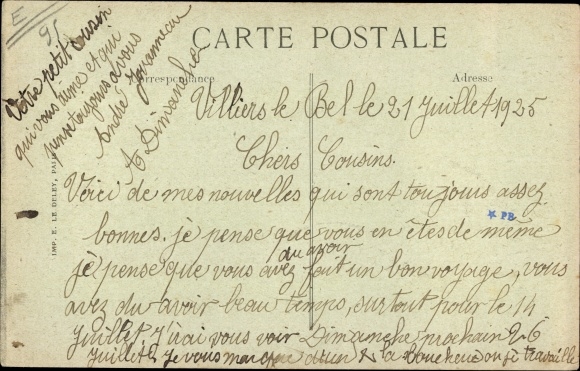 E
95
CARTE POSTALE
Correspondance
Adresse
Villiers le Bel le 21 Juillet 1925
Chers Cousins.
Voici de mes nouvelles qui sont toujours assez
bonnes. je pense que vous en êtes de même
je pense que vous avez du avoir fait un bon voyage, vous
avez du avoir beau temps, surtout pour le 14
Juillet. J'irai vous voir Dimanche prochain 26
Juillet. Je vous marque d'un la ou je travaille
Votre petit cousin
qui vous aime et qui
pense toujours a vous
André
A Dimanche
IMP. E. LE DELEY, PARIS
PB